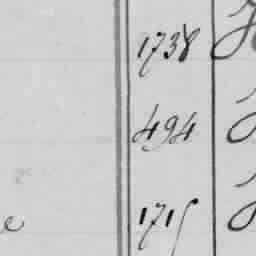 1738
494
1715